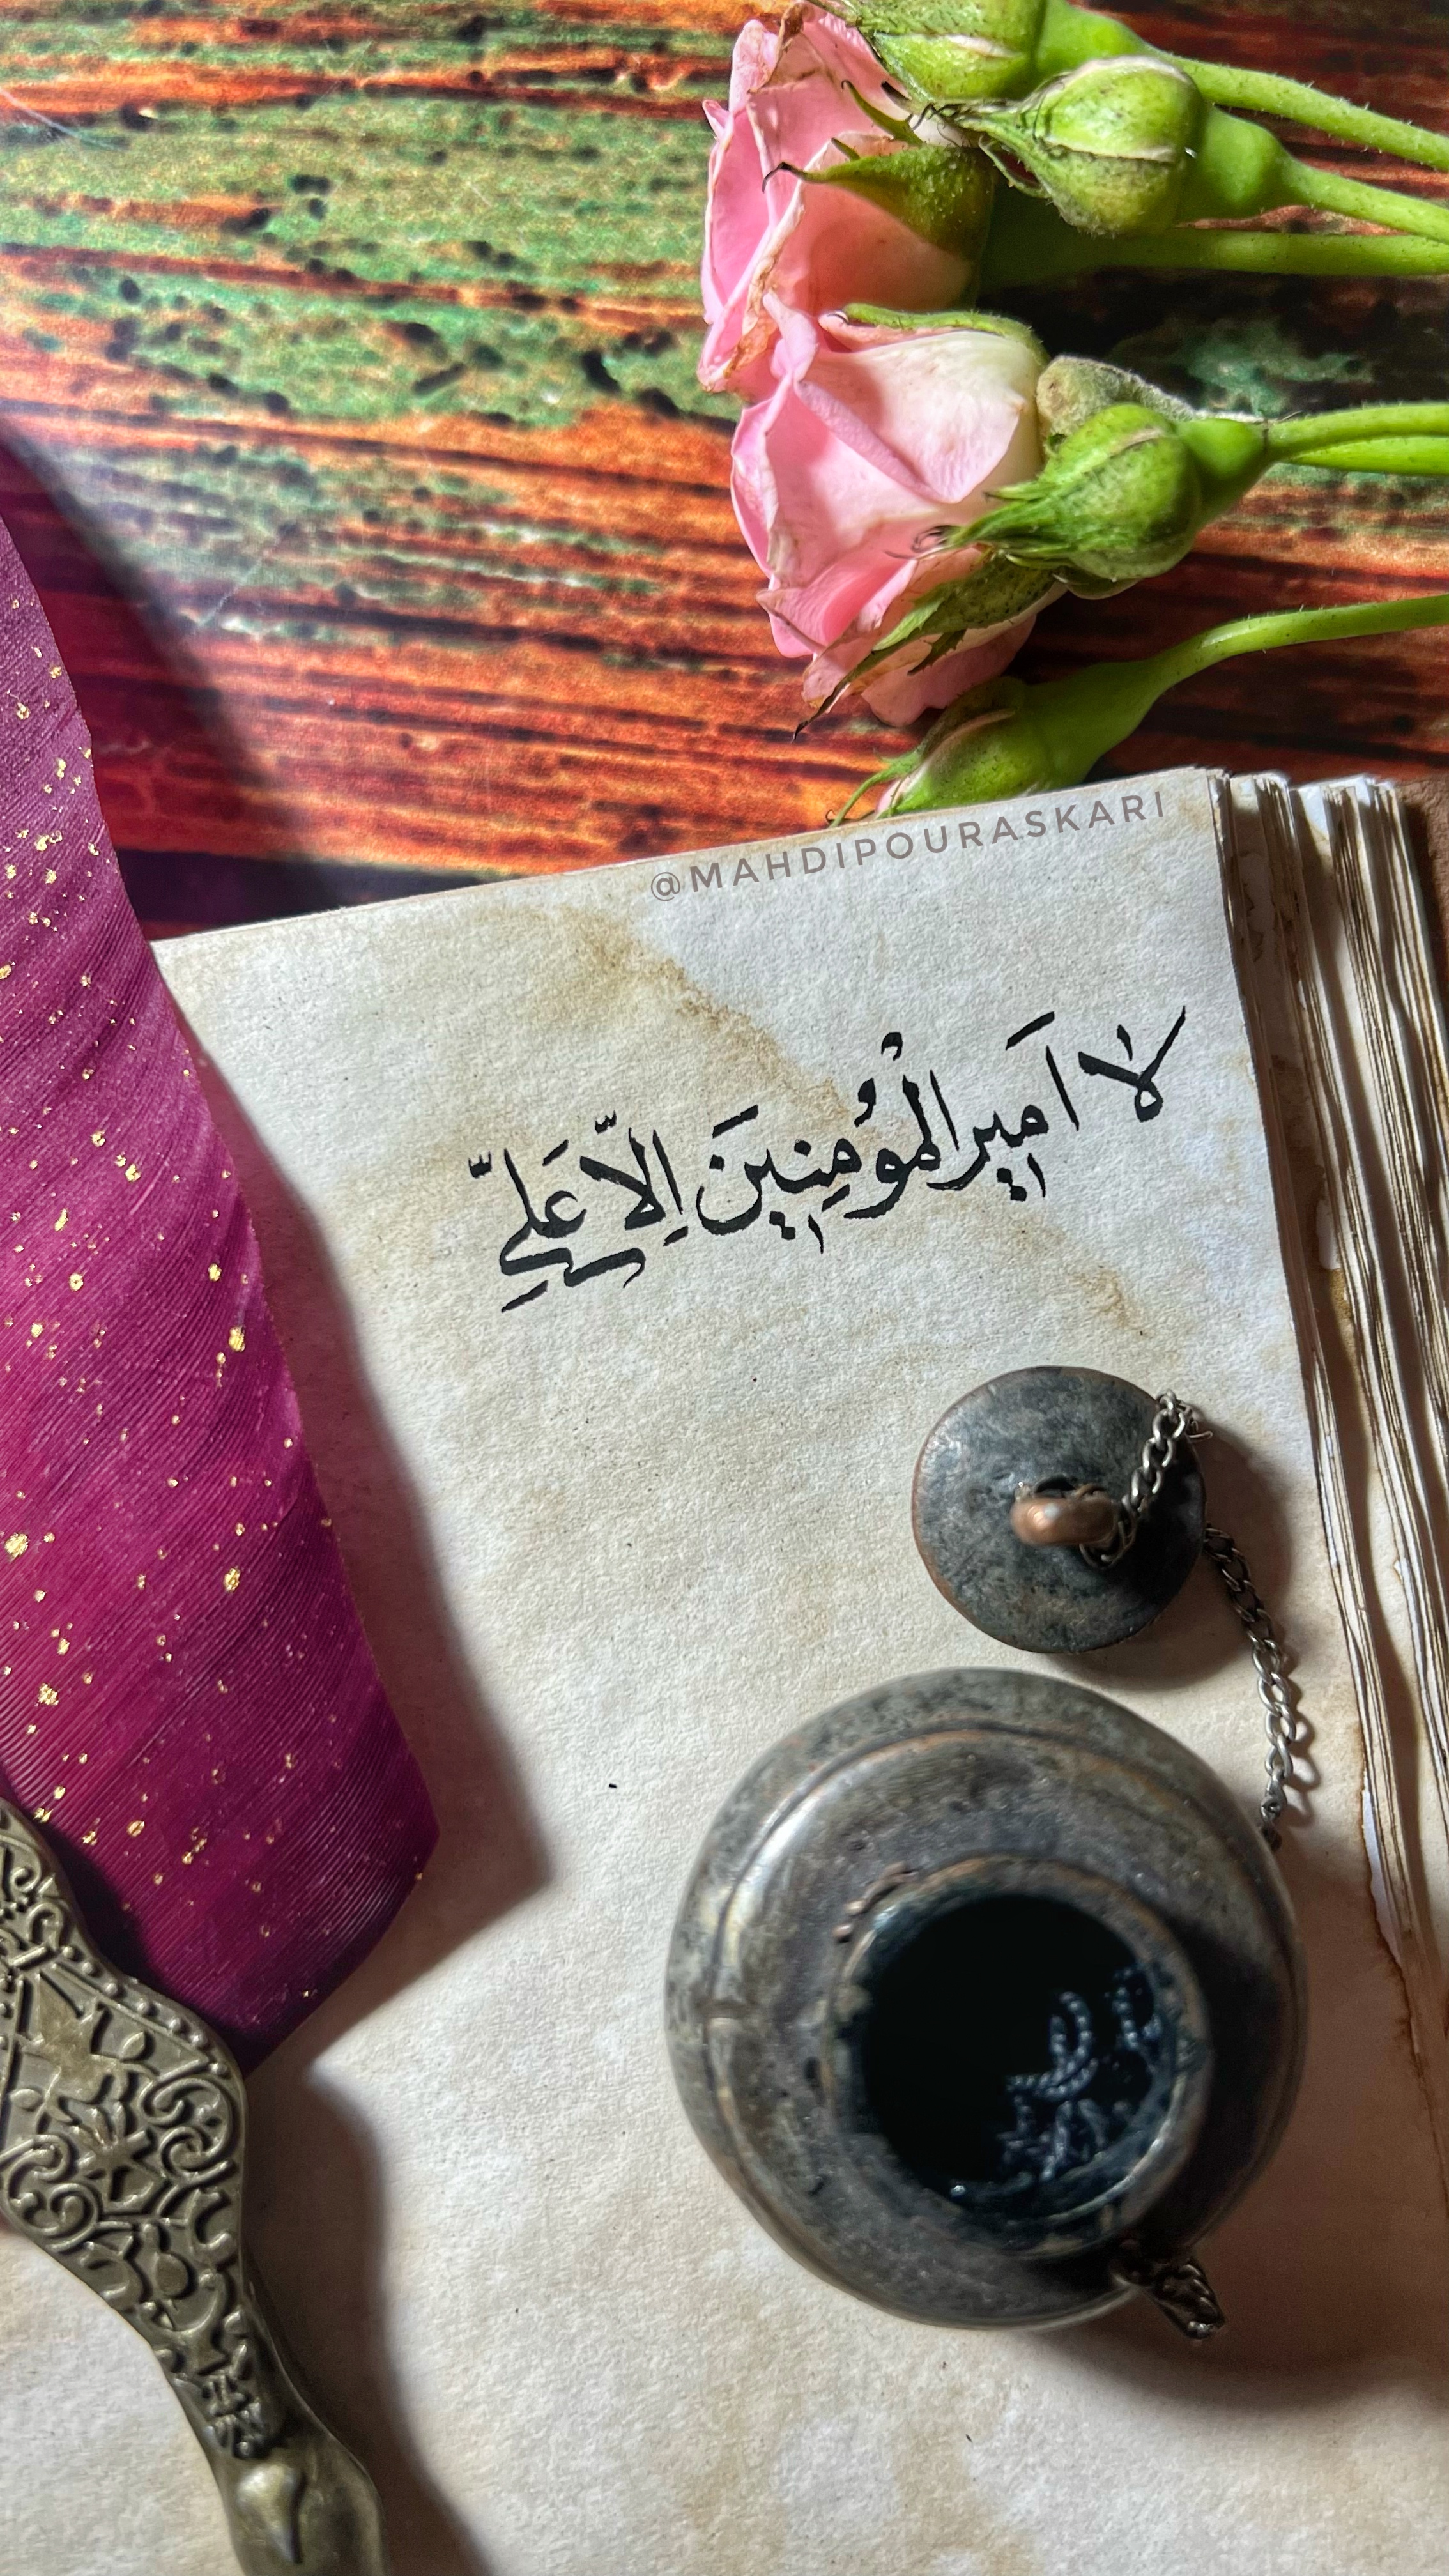 @MAHDIPOURASKARI
لا اَمیرالْمُؤمِنینَ اِلّا عَلِیّ